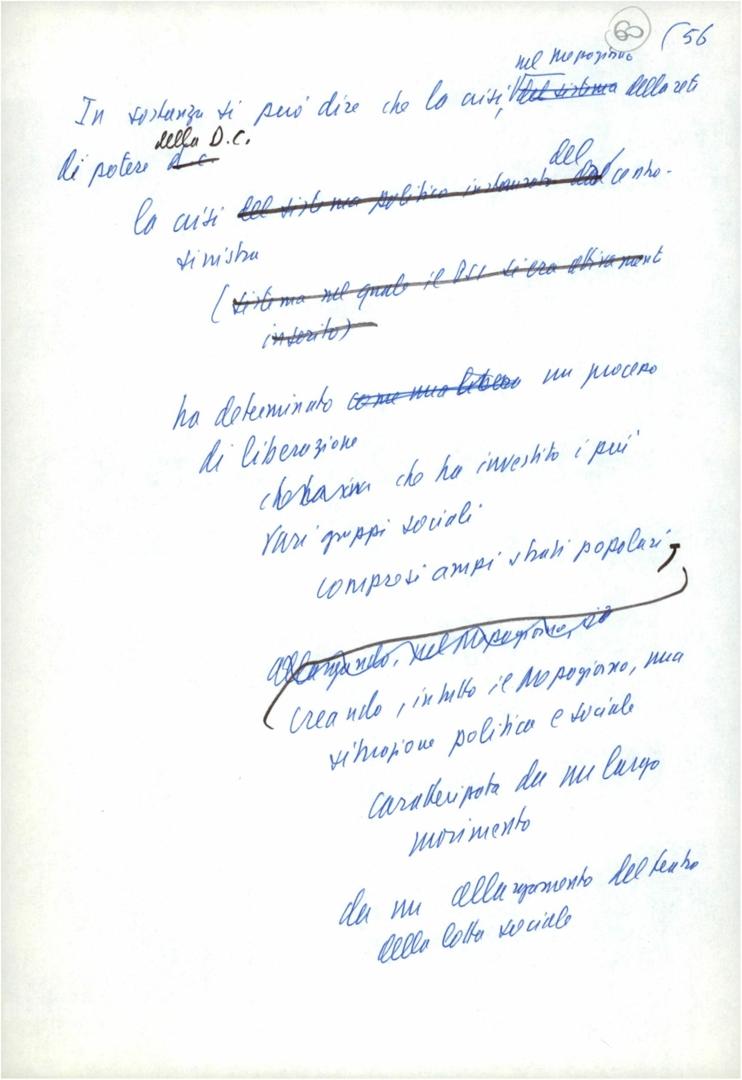 60 (56
nel Mezzogiorno
In sostanza si può dire che la crisi, del sistema della rete
della D.C.
di potere d.c.
del
la crisi del sistema politico instaurato dal centro-
sinistra
(sistema nel quale il PSI si era attivament
inserito)
ha determinato come una libera un processo
di liberazione
che ha investito i più
vari gruppi sociali
compresi ampi strati popolari,
allargando, nel Mezzogiorno,
creando, in tutto il Mezzogiorno, una
situazione politica e sociale
caratterizzata da un largo
movimento
da un allargamento del teatro
della lotta sociale